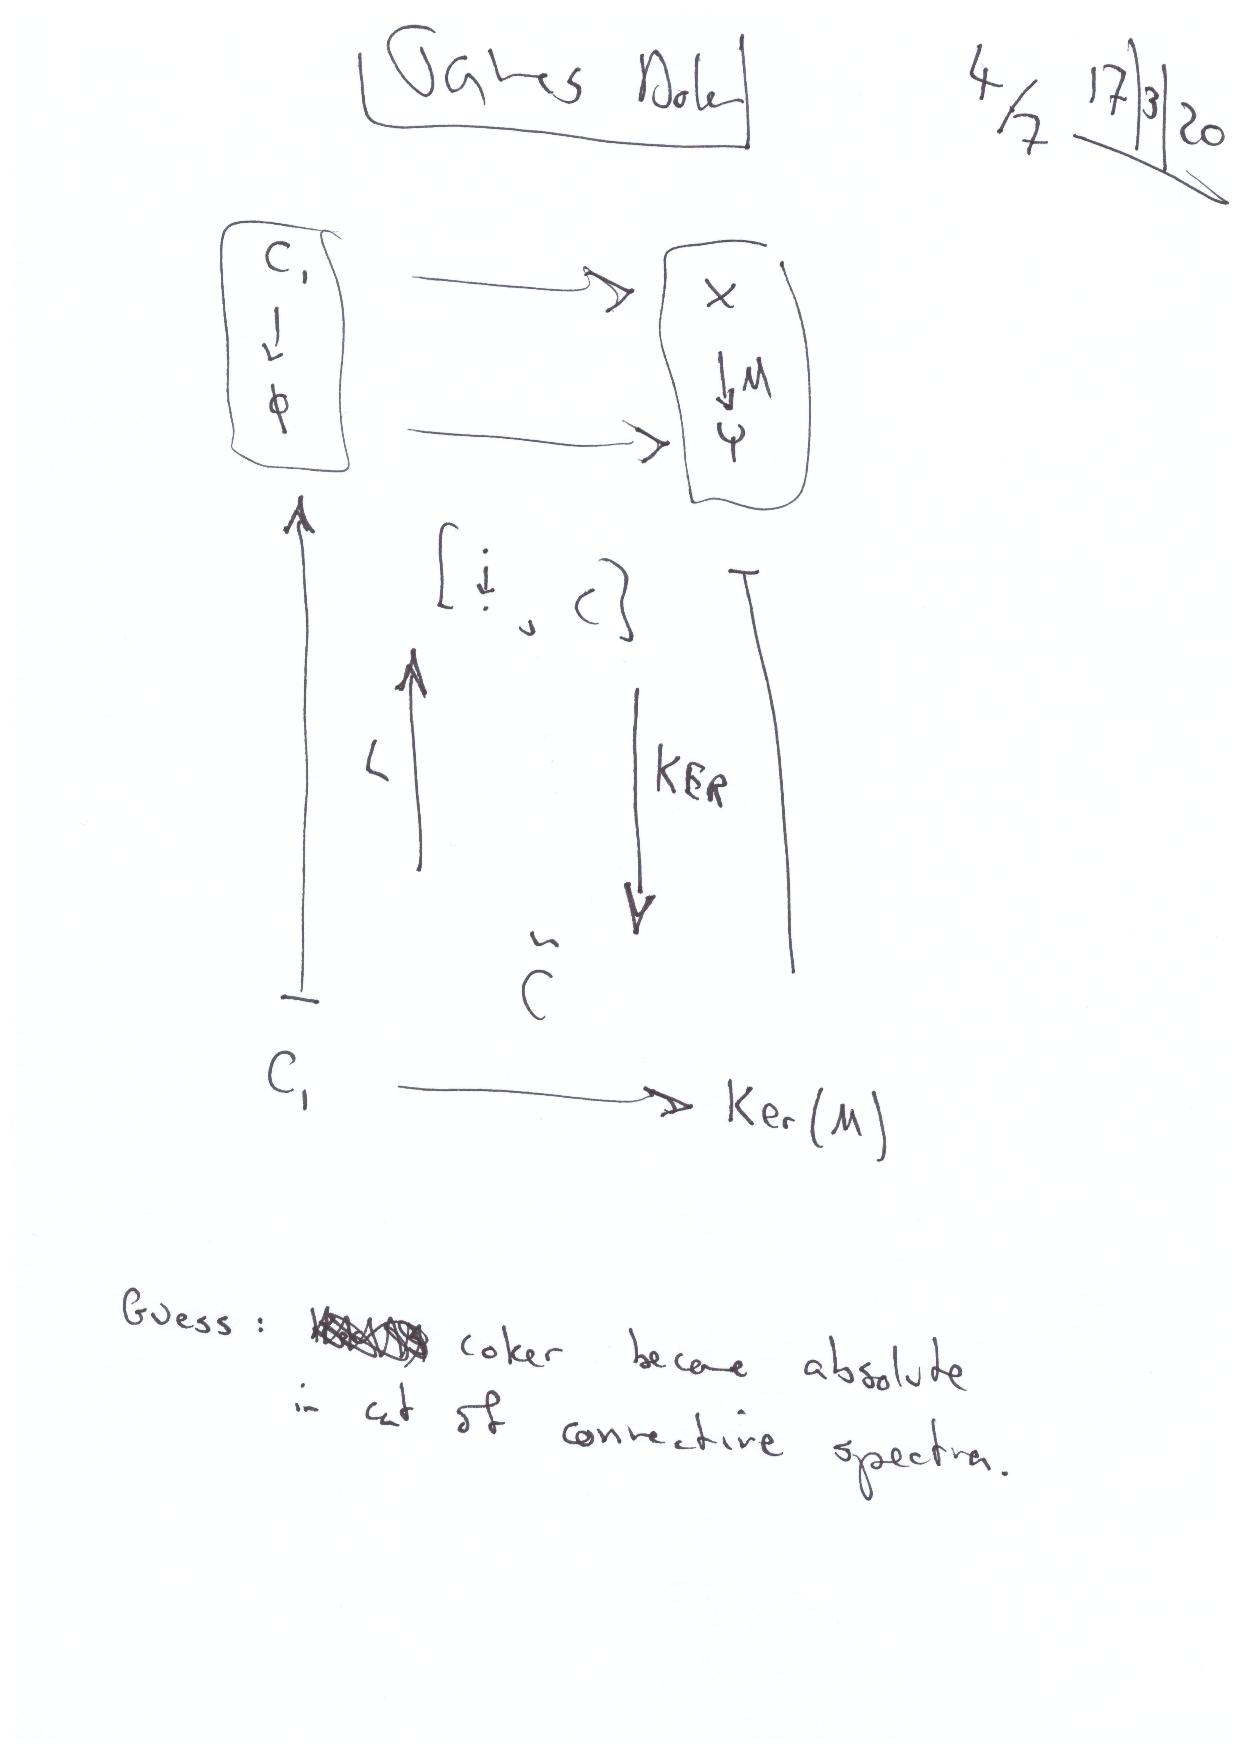 James Dolan
4/7 17|3|20
C₁ → X
↓ ↓ M
φ → Ψ
[↓, C]
L KER
C̃
C₁ → Ker(M)
Guess: coker become absolute
in cat of connective spectra.